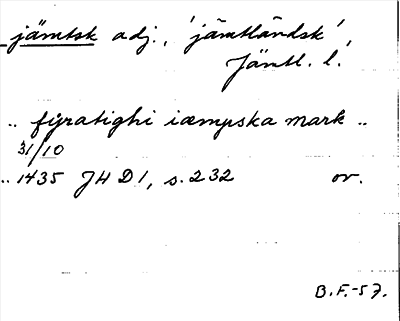 jämtsk adj., 'jämtländsk',
Jämtl. l.
.. fyratighi iæmpska mark ..
31/10
.. 1435 JH D1, s. 232 or.
B.F.-57.